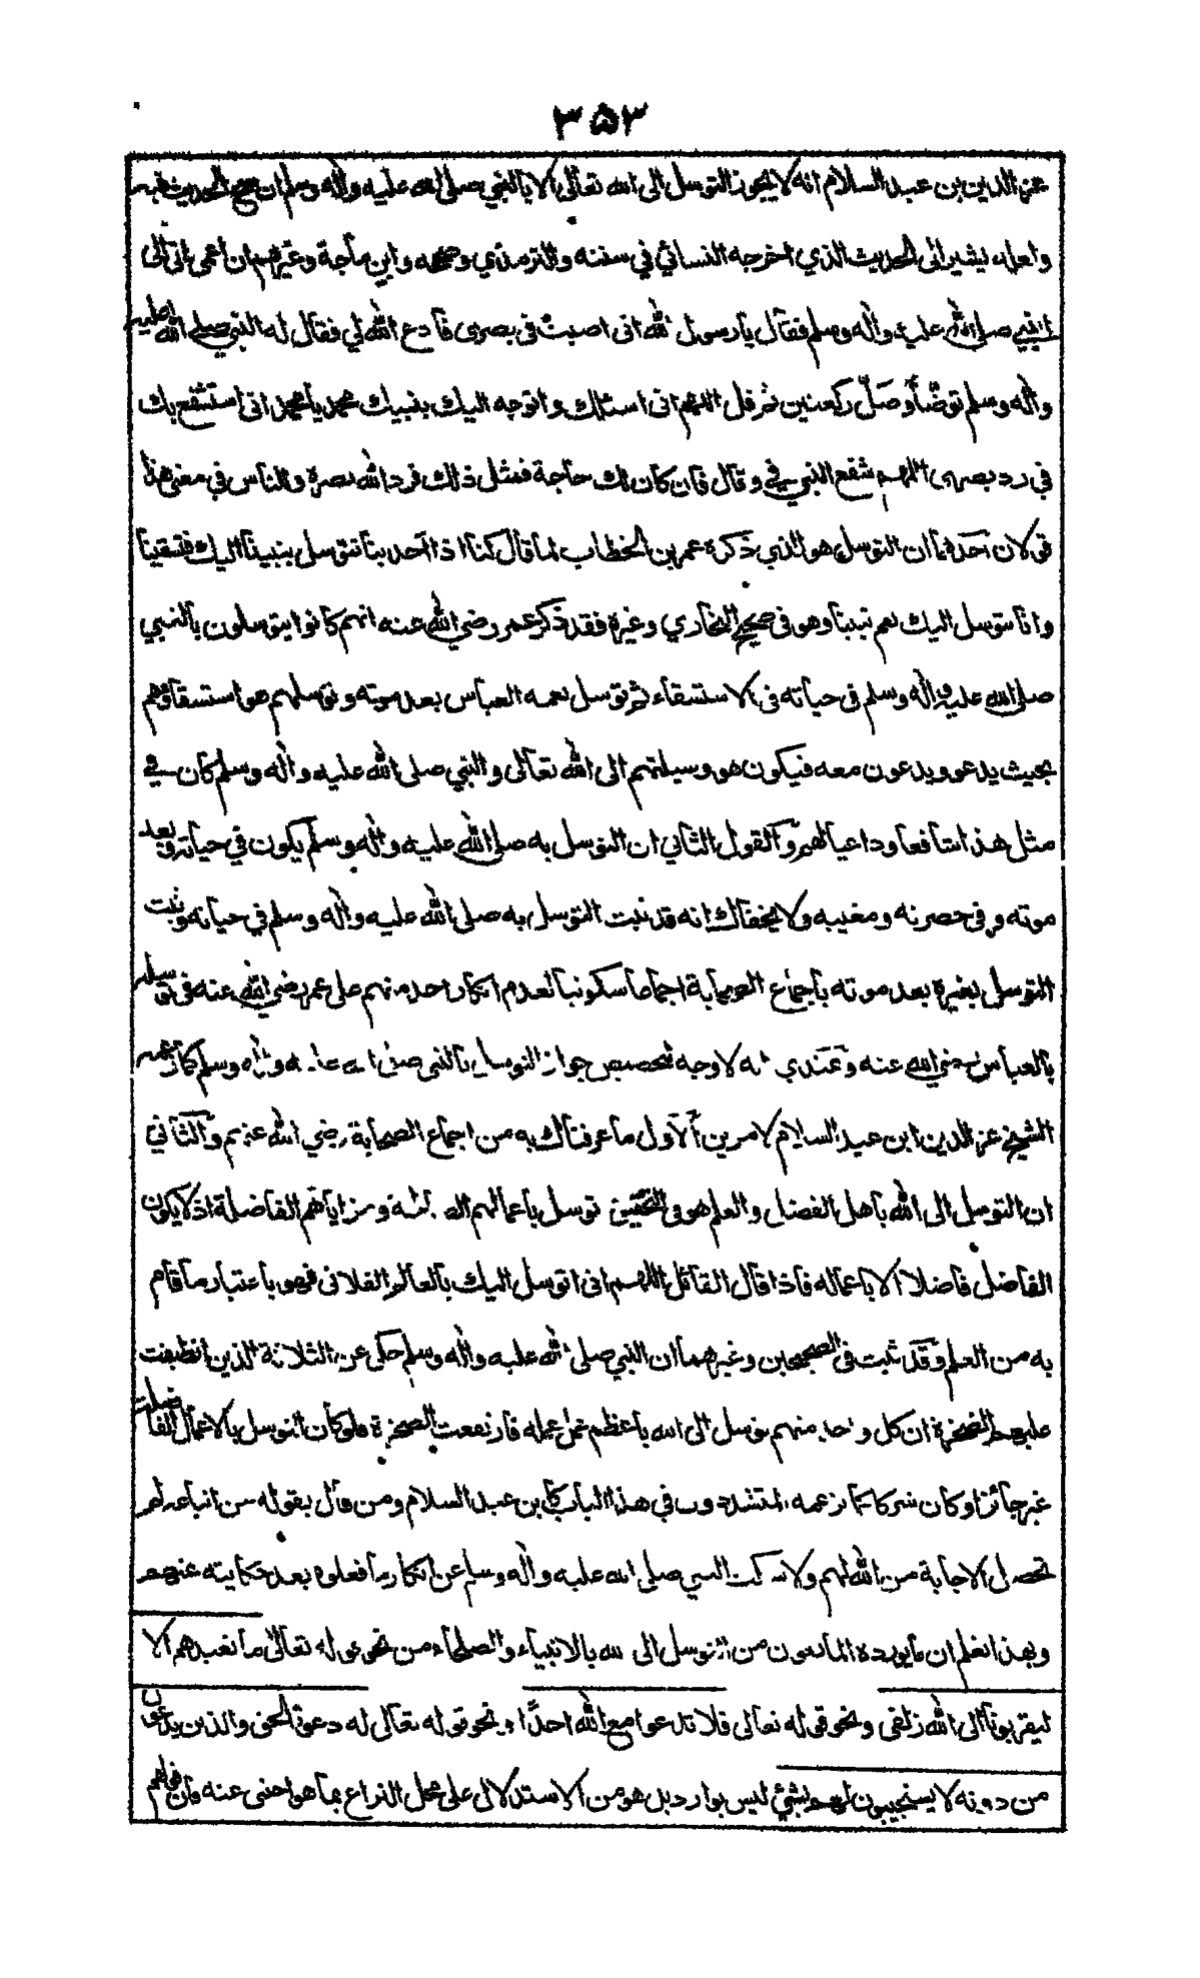 ٣٥٣
عز الدين بن عبد السلام انه لا يجوز التوسل الى الله تعالى الا بالنبي صلى الله عليه واٰله وسلم ان صح الحديث فيه
ولعله يشير الى الحديث الذي اخرجه النسائي في سننه والترمذي وصححه وابن ماجة وغيرهم ان اعمى اتى الى
النبي صلى الله عليه واٰله وسلم فقال يا رسول الله انى اصبت في بصرى فادع الله لي فقال له النبي صلى الله عليه
واٰله وسلم توضّأ وصَلّ ركعتين ثم قل اللهم انى اسئلك واتوجه اليك بنبيك محمد يا محمد انى استشفع بك
فى رد بصرى اللهم شفع النبي في وقال فان كان لك حاجة فمثل ذلك فرد الله بصره والناس فى معنى هذا
قولان احدهما ان التوسل هو الذي ذكره عمر بن الخطاب لما قال كنا اذا اجدبنا نتوسل بنبينا اليك فتسقينا
وانا نتوسل اليك بعم نبينا وهو فى صحيح البخاري وغيره فقد ذكر عمر رضي الله عنه انهم كانوا يتوسلون بالنبي
صلى الله عليه واٰله وسلم فى حياته فى الاستسقاء ثم توسل بعمه العباس بعد موته وتوسلهم هو استسقاؤهم
بحيث يدعو ويدعون معه فيكون هو وسيلتهم الى الله تعالى والنبي صلى الله عليه واٰله وسلم كان في
مثل هذا شافعا وداعيا لهم والقول الثاني ان التوسل به صلى الله عليه واٰله وسلم يكون في حياته وبعد
موته وفى حضرته ومغيبه ولا يخفاك انه قد ثبت التوسل به صلى الله عليه واٰله وسلم في حياته وثبت
التوسل بغيره بعد موته باجماع الصحابة اجماعا سكوتيا لعدم انكار احد منهم على عمر رضي الله عنه فى توسله
بالعباس رضي الله عنه وعندي انه لا وجه لتخصيص جواز التوسل بالنبي صلى الله عليه واٰله وسلم كما زعمه
الشيخ عز الدين ابن عبد السلام لامرين الاول ما عرفناك به من اجماع الصحابة رضي الله عنهم والثاني
ان التوسل الى الله باهل الفضل والعلم هو فى التحقيق توسل باعمالهم الصالحة ومزاياهم الفاضلة اذ لا يكون
الفاضل فاضلا الا باعماله فاذا قال القائل اللهم انى اتوسل اليك بالعالم الفلانى فهو باعتبار ما قام
به من العلم وقد ثبت فى الصحيحين وغيرهما ان النبي صلى الله عليه واٰله وسلم حكى عن الثلاثة الذين انطبقت
عليهم الصخرة ان كل واحد منهم توسل الى الله باعظم عمل عمله فارتفعت الصخرة فلو كان التوسل بالاعمال الفاضلة
غير جائز او كان شركا كما يزعمه المتشددون في هذا الباب كابن عبد السلام ومن قال بقوله من اتباعه لم
تحصل الاجابة من الله لهم ولا سكت النبي صلى الله عليه واٰله وسلم عن انكار ما فعلوه بعد حكايته عنهم
وبهذا تعلم ان ما يورده المانعون من التوسل الى الله بالانبياء والصلحاء من نحو قوله تعالى ما نعبدهم الا
ليقربونا الى الله زلفى ونحو قوله تعالى فلا تدعوا مع الله احدًا ونحو قوله تعالى له دعوة الحق والذين يدعون
من دونه لا يستجيبون لهم بشئ ليس بوارد بل هو من الاستدلال على محل النزاع بما هو اجنبى عنه فان قولهم